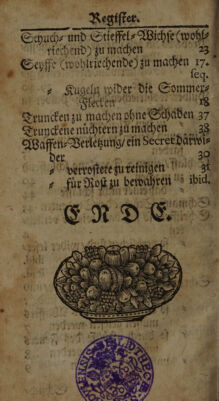 Register.
Schuch- und Stieffel-Wichse (wohl
riechend) zu machen 23
Seyffe (wohlriechende) zu machen 17.
seq.
= Kugeln wider die Sommer-
Flecken 18
Truncken zu machen ohne Schaden 37
Trunckene nüchtern zu machen 38
Waffen-Verletzung / ein Secret darwi-
der 30
= verrostete zu reinigen 31
= für Rost zu bewahren ibid.
ENDE.